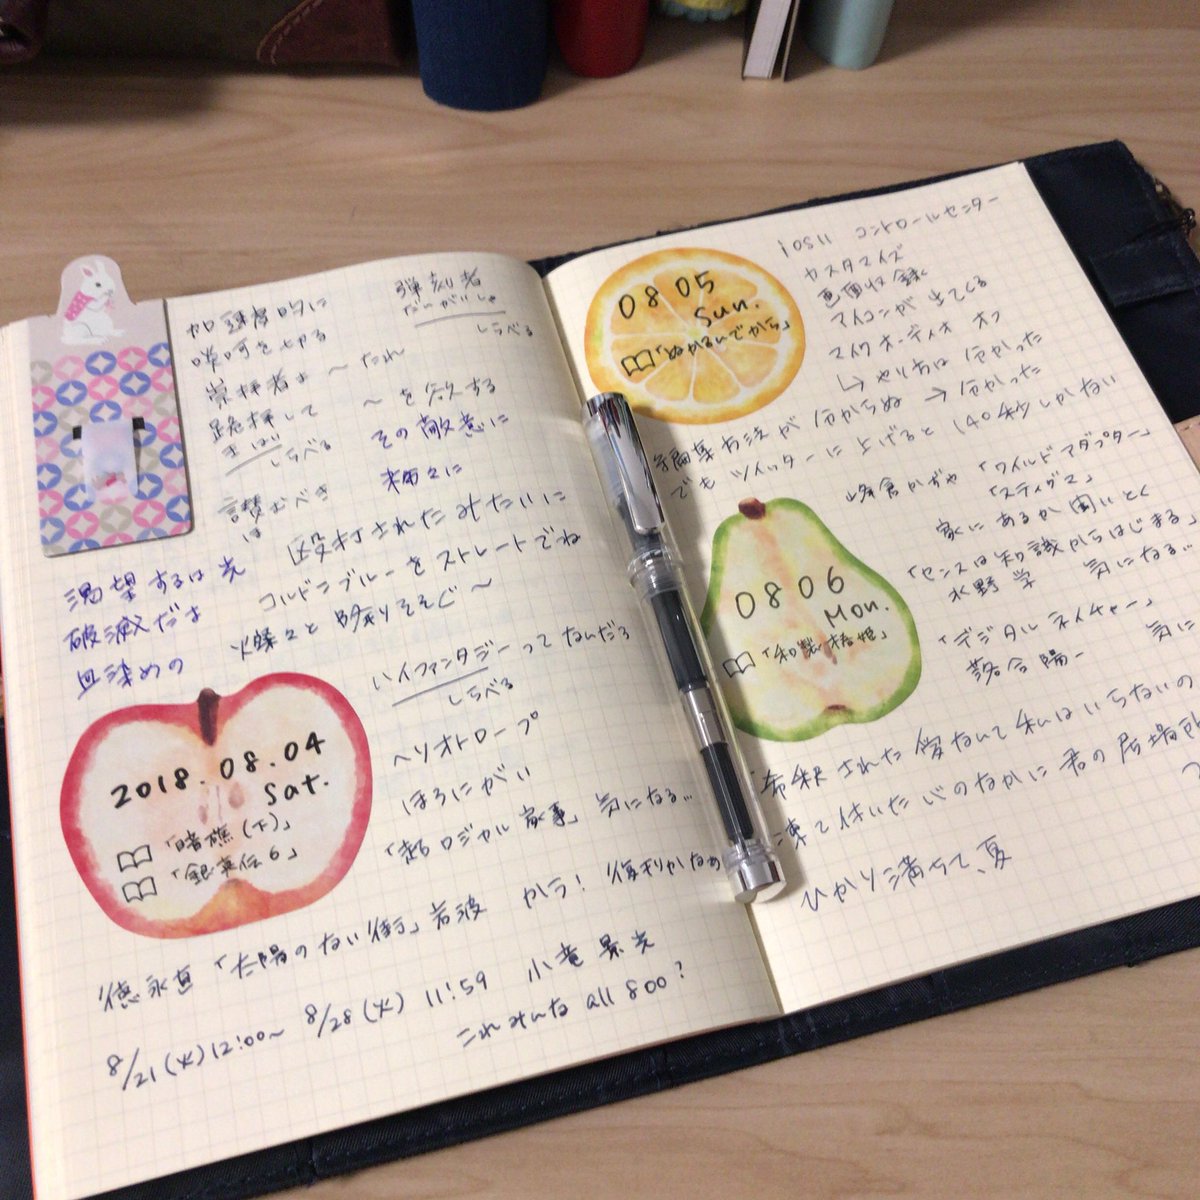 加速度的に
啖呵を切る
崇拝者よ 〜たれ
跪拝して 〜を欲する
きはい しらべる
その敵意に
讃むべき
は
弾劾者
だんがいしゃ
しらべる
殴打されたみたいに
渇望するは光
コルドンブルーをストレートでね
破滅だよ
血染めの
ハイファンタジーってなんだろ
しらべる
2018.08.04
Sat.
「暗礁(下)」
「銀英伝6」
ヘリオトロープ
ほろにがい
「超ロジカル家事」気になる…
徳永直「太陽のない街」岩波 かう! 復刊かなぁ
8/21(火)12:00〜 8/28(火) 11:59 小竜景光
これみんな all 800?
0805
Sun.
「ぬかるんでから」
iOS11 コントロールセンター
カスタマイズ
画面収録
マイコンが出てくる
マイクオーディオ オフ
↳ やり方は分かった
編集方法が分からぬ → 分かった
でもツイッターに上げると140秒しかない
峰倉かずや「ワイルドアダプター」
「スティグマ」
家にあるか聞いとく
0806
Mon.
「和製椿姫」
「センスは知識からはじまる」
水野学 気になる…
「デジタルネイチャー」
落合陽一 気に
希釈された愛なんて私はいらないの
凍て付いた心のなかに君の居場所
ひかり満ちて、夏